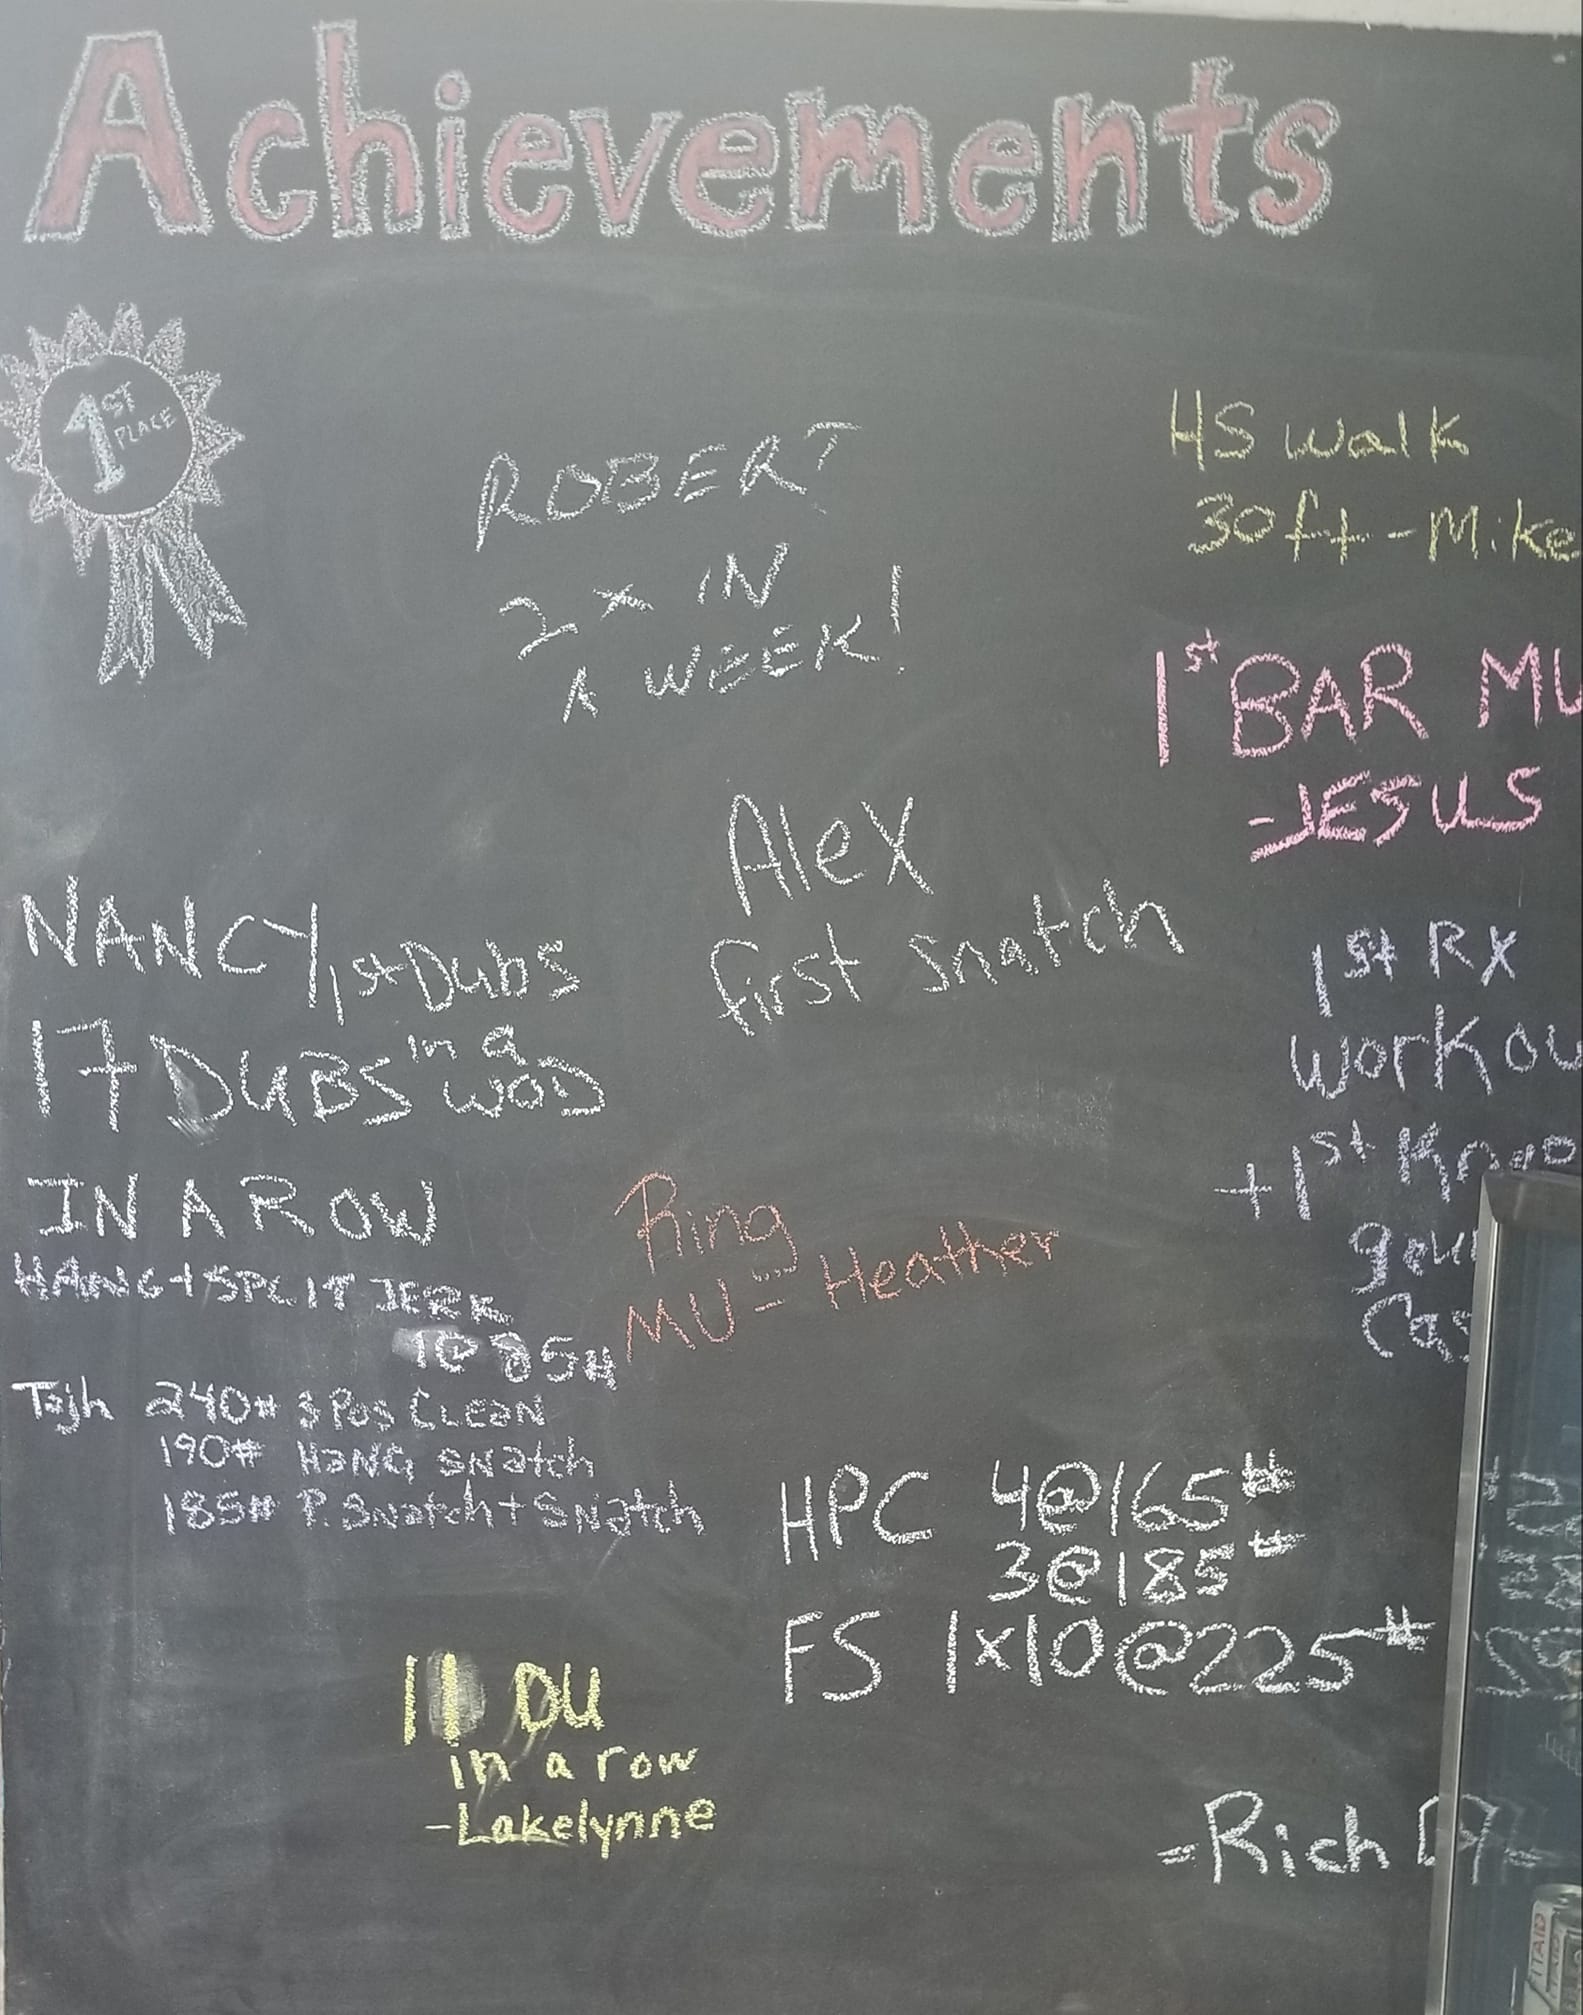 Achievements
1ST
PLACE
ROBERT
2 x IN
A WEEK!
HS walk
30ft - Mike
1st BAR MU
- JESUS
Alex
first snatch
NANCY 1st Dubs
17 DUBS in a
WOD
IN A ROW
HANG + SPLIT JERK
Tajh 240# 3 POS CLEAN
190# HANG SNatch
185# P. SNatch + SNatch
Ring
MU - Heather
1st RX
workou
+ 1st
HPC 4@165#
3@185#
FS 1x10@225#
- Rich
11 DU
in a row
- Lakelynne